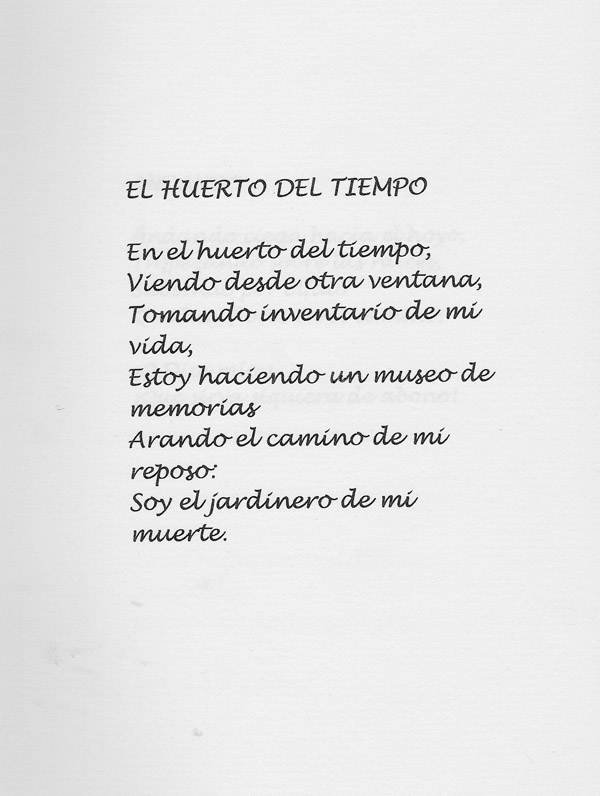 EL HUERTO DEL TIEMPO
En el huerto del tiempo,
Viendo desde otra ventana,
Tomando inventario de mi
vida,
Estoy haciendo un museo de
memorias
Arando el camino de mi
reposo:
Soy el jardinero de mi
muerte.